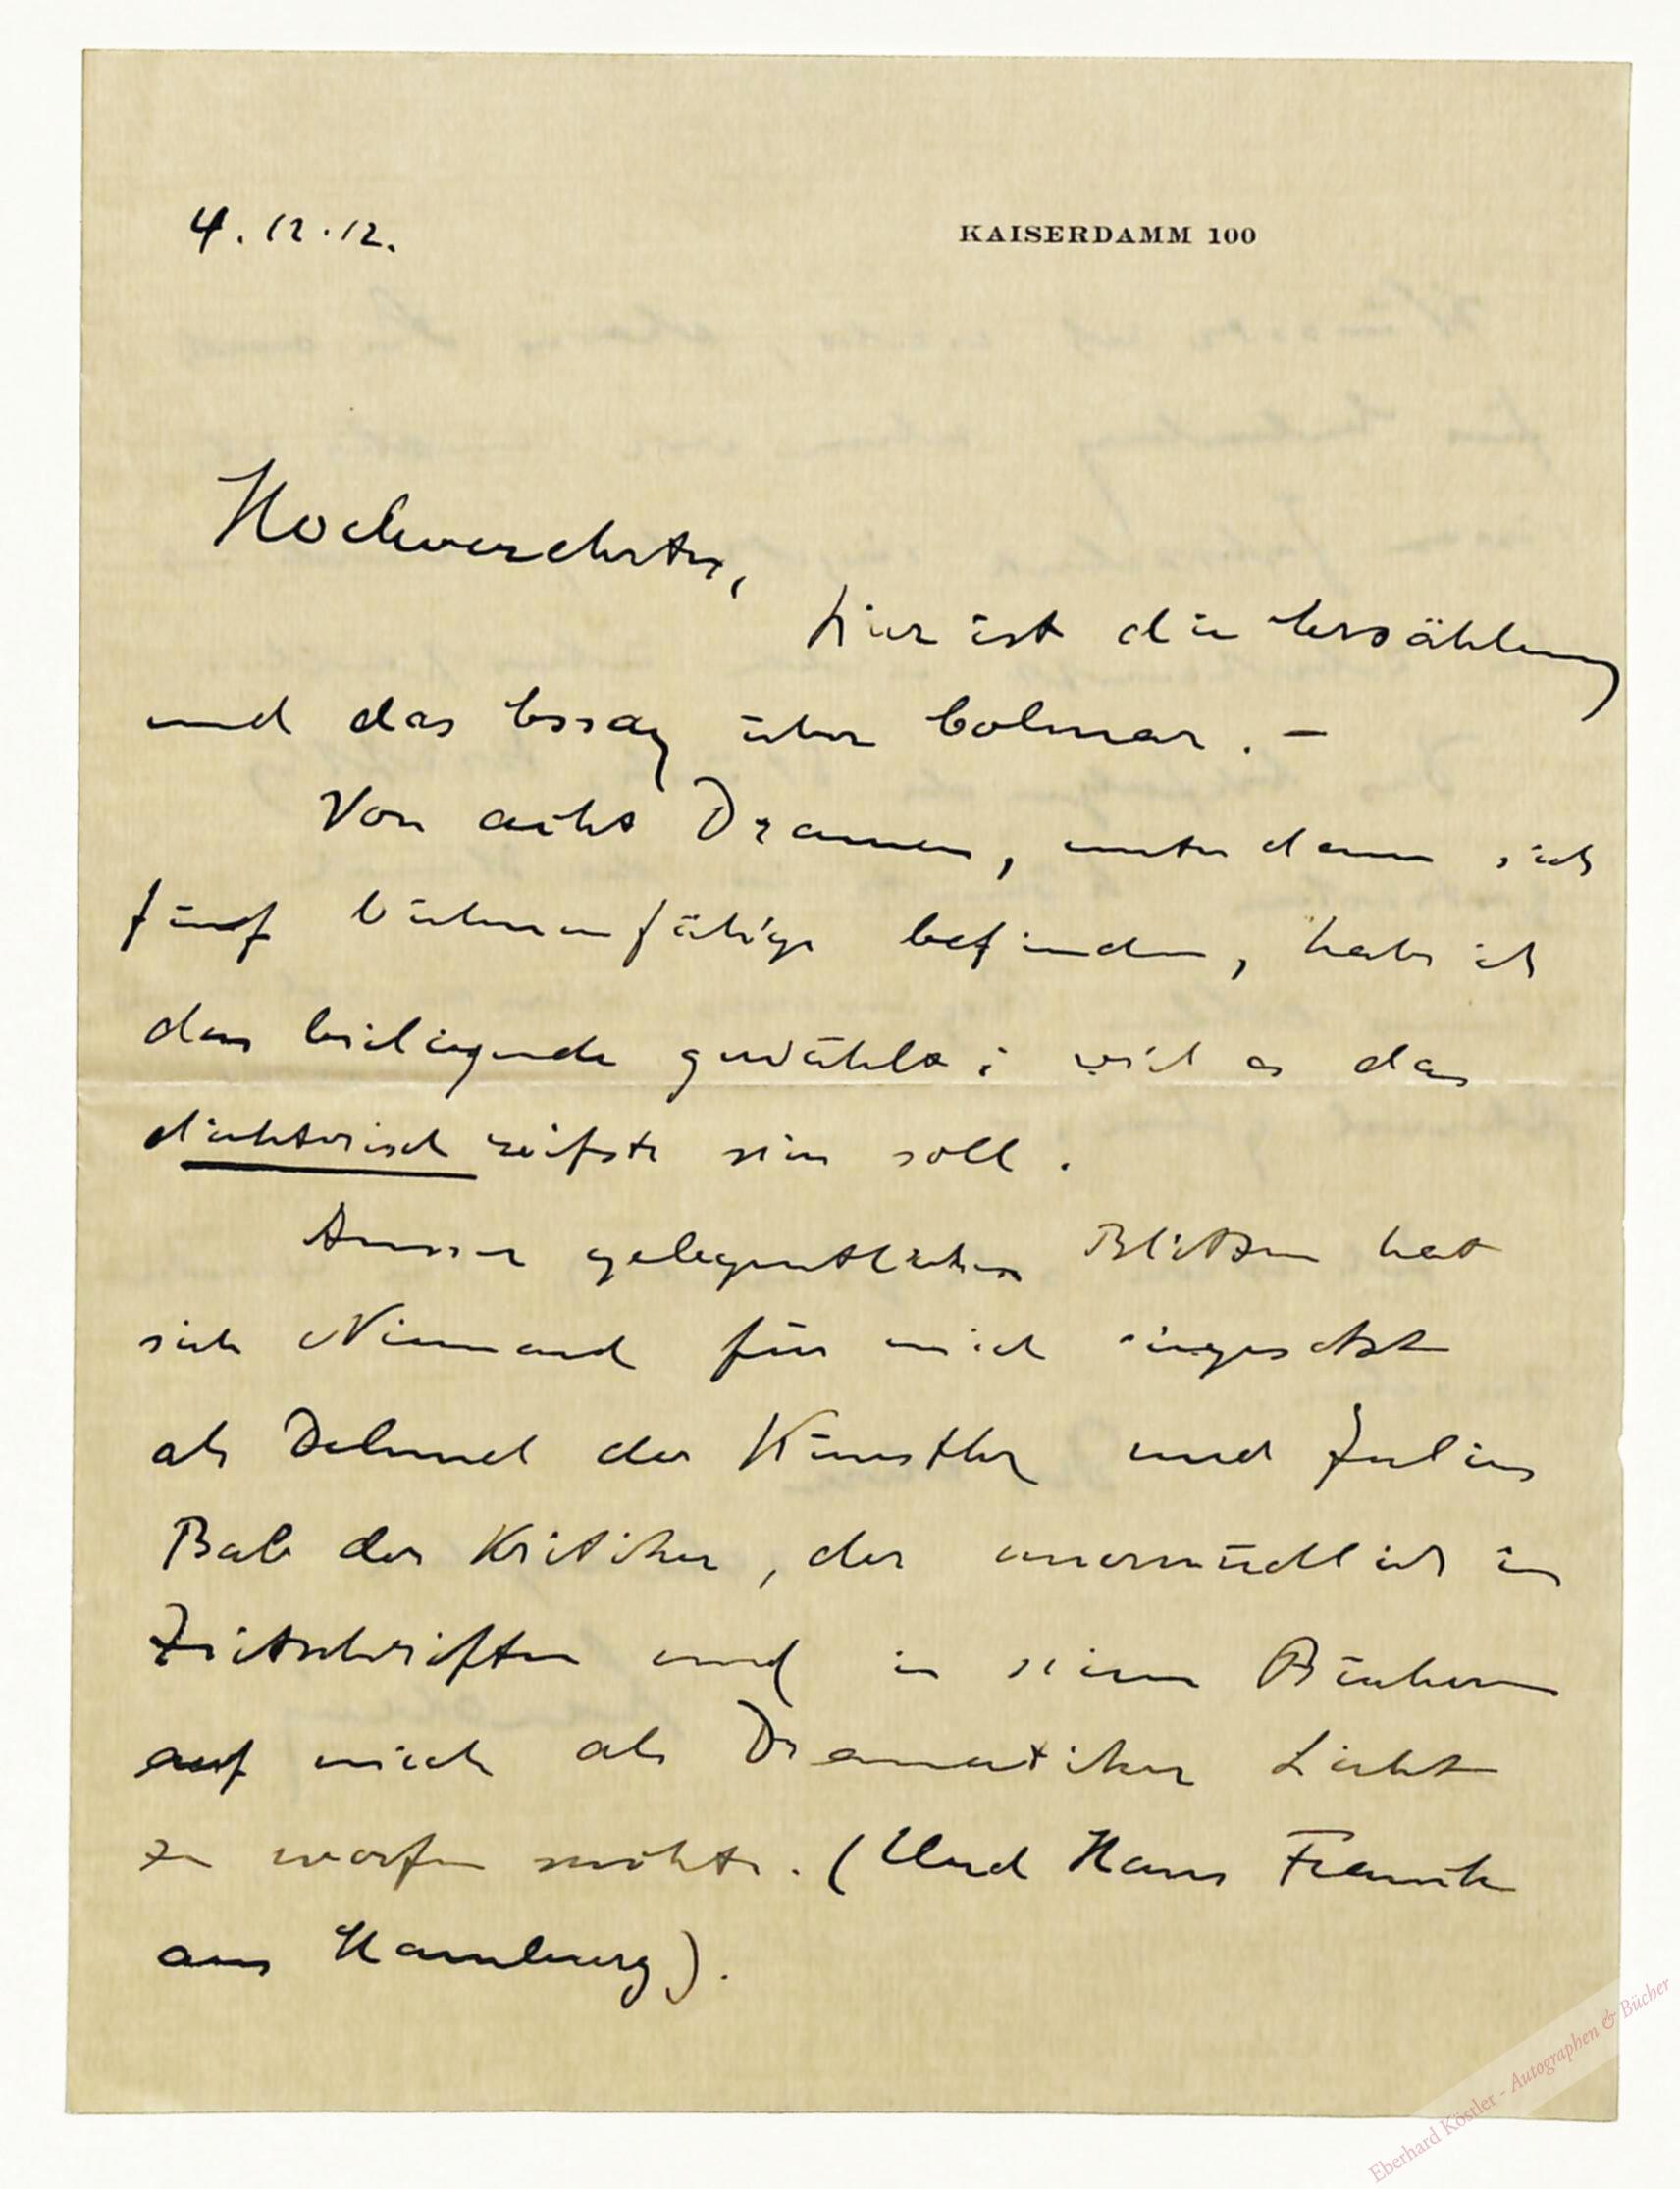 4. 12. 12.
KAISERDAMM 100
Hochverehrter,
hier ist die Erzählung
und das Essay über Colmar. –
Von acht Dramen, unter denen sich
fünf bühnenfähige befinden, habe ich
das beiliegende gewählt: weil es das
dichterisch reifste sein soll.
Ausser gelegentlichen Blitzen hat
sich Niemand für mich eingesetzt
als Dehmel der Künstler und Julius
Bab der Kritiker, der unermüdlich in
Zeitschriften und in seinen Büchern
auf mich als Dramatiker Licht
zu werfen suchte. (Und Hans Franck
aus Hamburg).
Eberhard Köstler - Autographen & Bücher